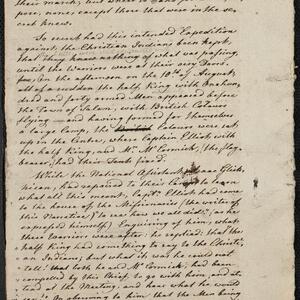 their march; and
pose; none except those that were in the se-
cret knew.
So secret had this intended Expedition
against the Christian Indians been kept,
that they knew nothing of what was passing,
until the Warriors were at their very Doors,
in the afternoon on the 10th of August,
all of a sudden the half King with one hun-
dred and forty armed Men appeared before
the Town of Salem, with British Colours
flying — and having formed for themselves
a large Camp, the Colours were set
up in the Centre, where Captain Elliot with
the half King, and Mr. McCormick, the flag
bearer, had their Tents fixed.
While the National Assistant, Isaac Glik-
hican, had repaired to their Camp to learn
what all this meant, Capt. Elliot had come
to the house of the Missionaries (the writer of
this Narrative) "to see how we all did", as he
expressed himself) Enquiring of him, what
these Warriors were after, he replied: that the
half King had something to say to the Christi-
an Indians; but what it was he could not
tell; that both he and McCormick, had been
compelled by this Chief to go with him, and at-
tend at the Meeting, and hear what he would
say. On observing to him that the Men being